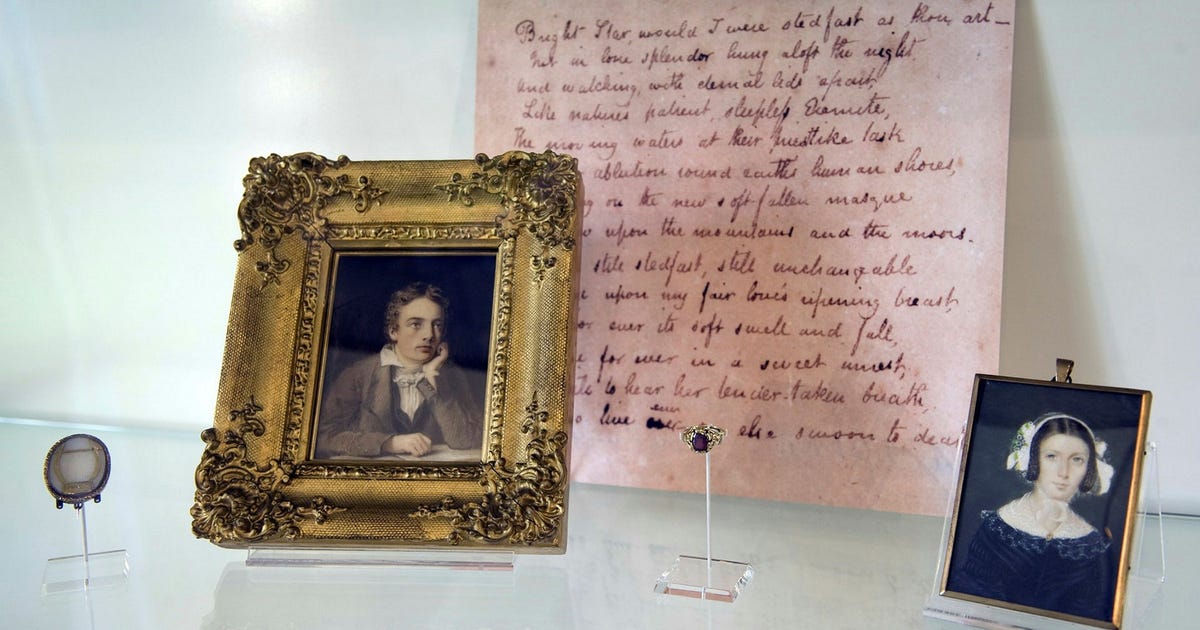 Bright Star, would I were stedfast as thou art—
Not in lone splendor hung aloft the night
and watching, with eternal lids apart,
Like natures patient, sleepless Eremite,
The moving waters at their priestlike task
ablution round earth's human shores,
on the new soft-fallen masque
upon the mountains and the moors.
still stedfast, still unchangeable
upon my fair love's ripening breast,
ever its soft swell and fall,
for ever in a sweet unrest,
to hear her tender-taken breath,
ever
live else swoon to